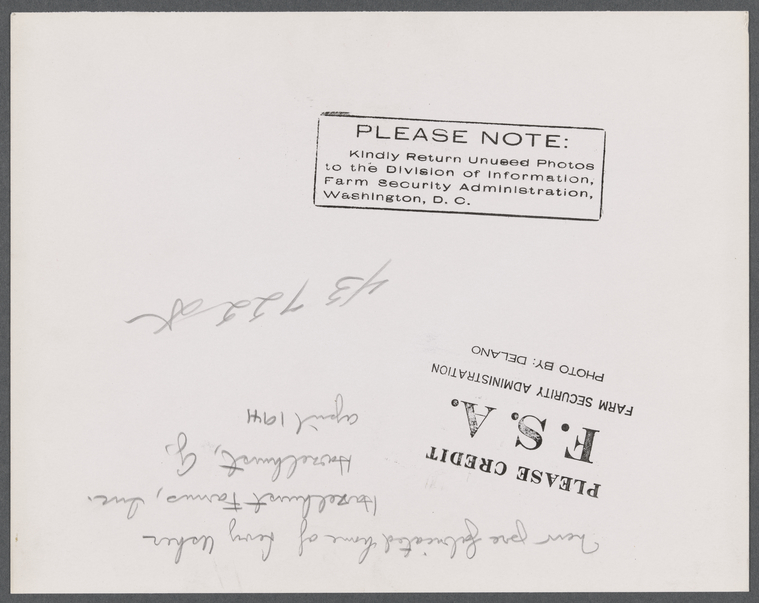 PLEASE NOTE:
Kindly Return Unused Photos
to the Division of Information,
Farm Security Administration,
Washington, D. C.
New prefabricated home of Levy Usher
Hazelhurst Farms, Inc.
Hazelhurst, G.
April 1941
PLEASE CREDIT
F. S. A.
FARM SECURITY ADMINISTRATION
PHOTO BY: DELANO
43722